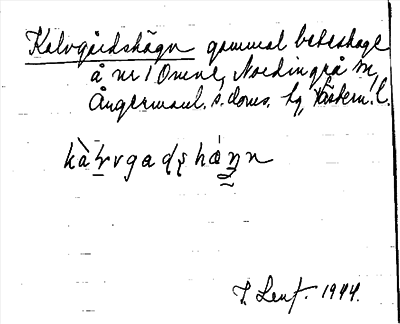 Kalvgårdshägn gammal beteshage
å nr 1 Omne, Nordingrå sn,
Ångermanl. s. doms. hg, Västern. l.
kàl̠vgadṣhán̠n
1944.